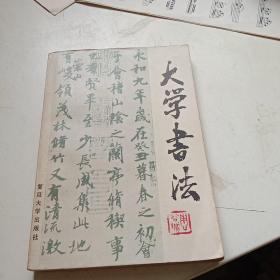 大学書法
永和九年歲在癸丑暮春之初會
于會稽山陰之蘭亭脩禊事
也群賢畢至少長咸集此地
有崇山峻領茂林脩竹又有清流激
复旦大学出版社